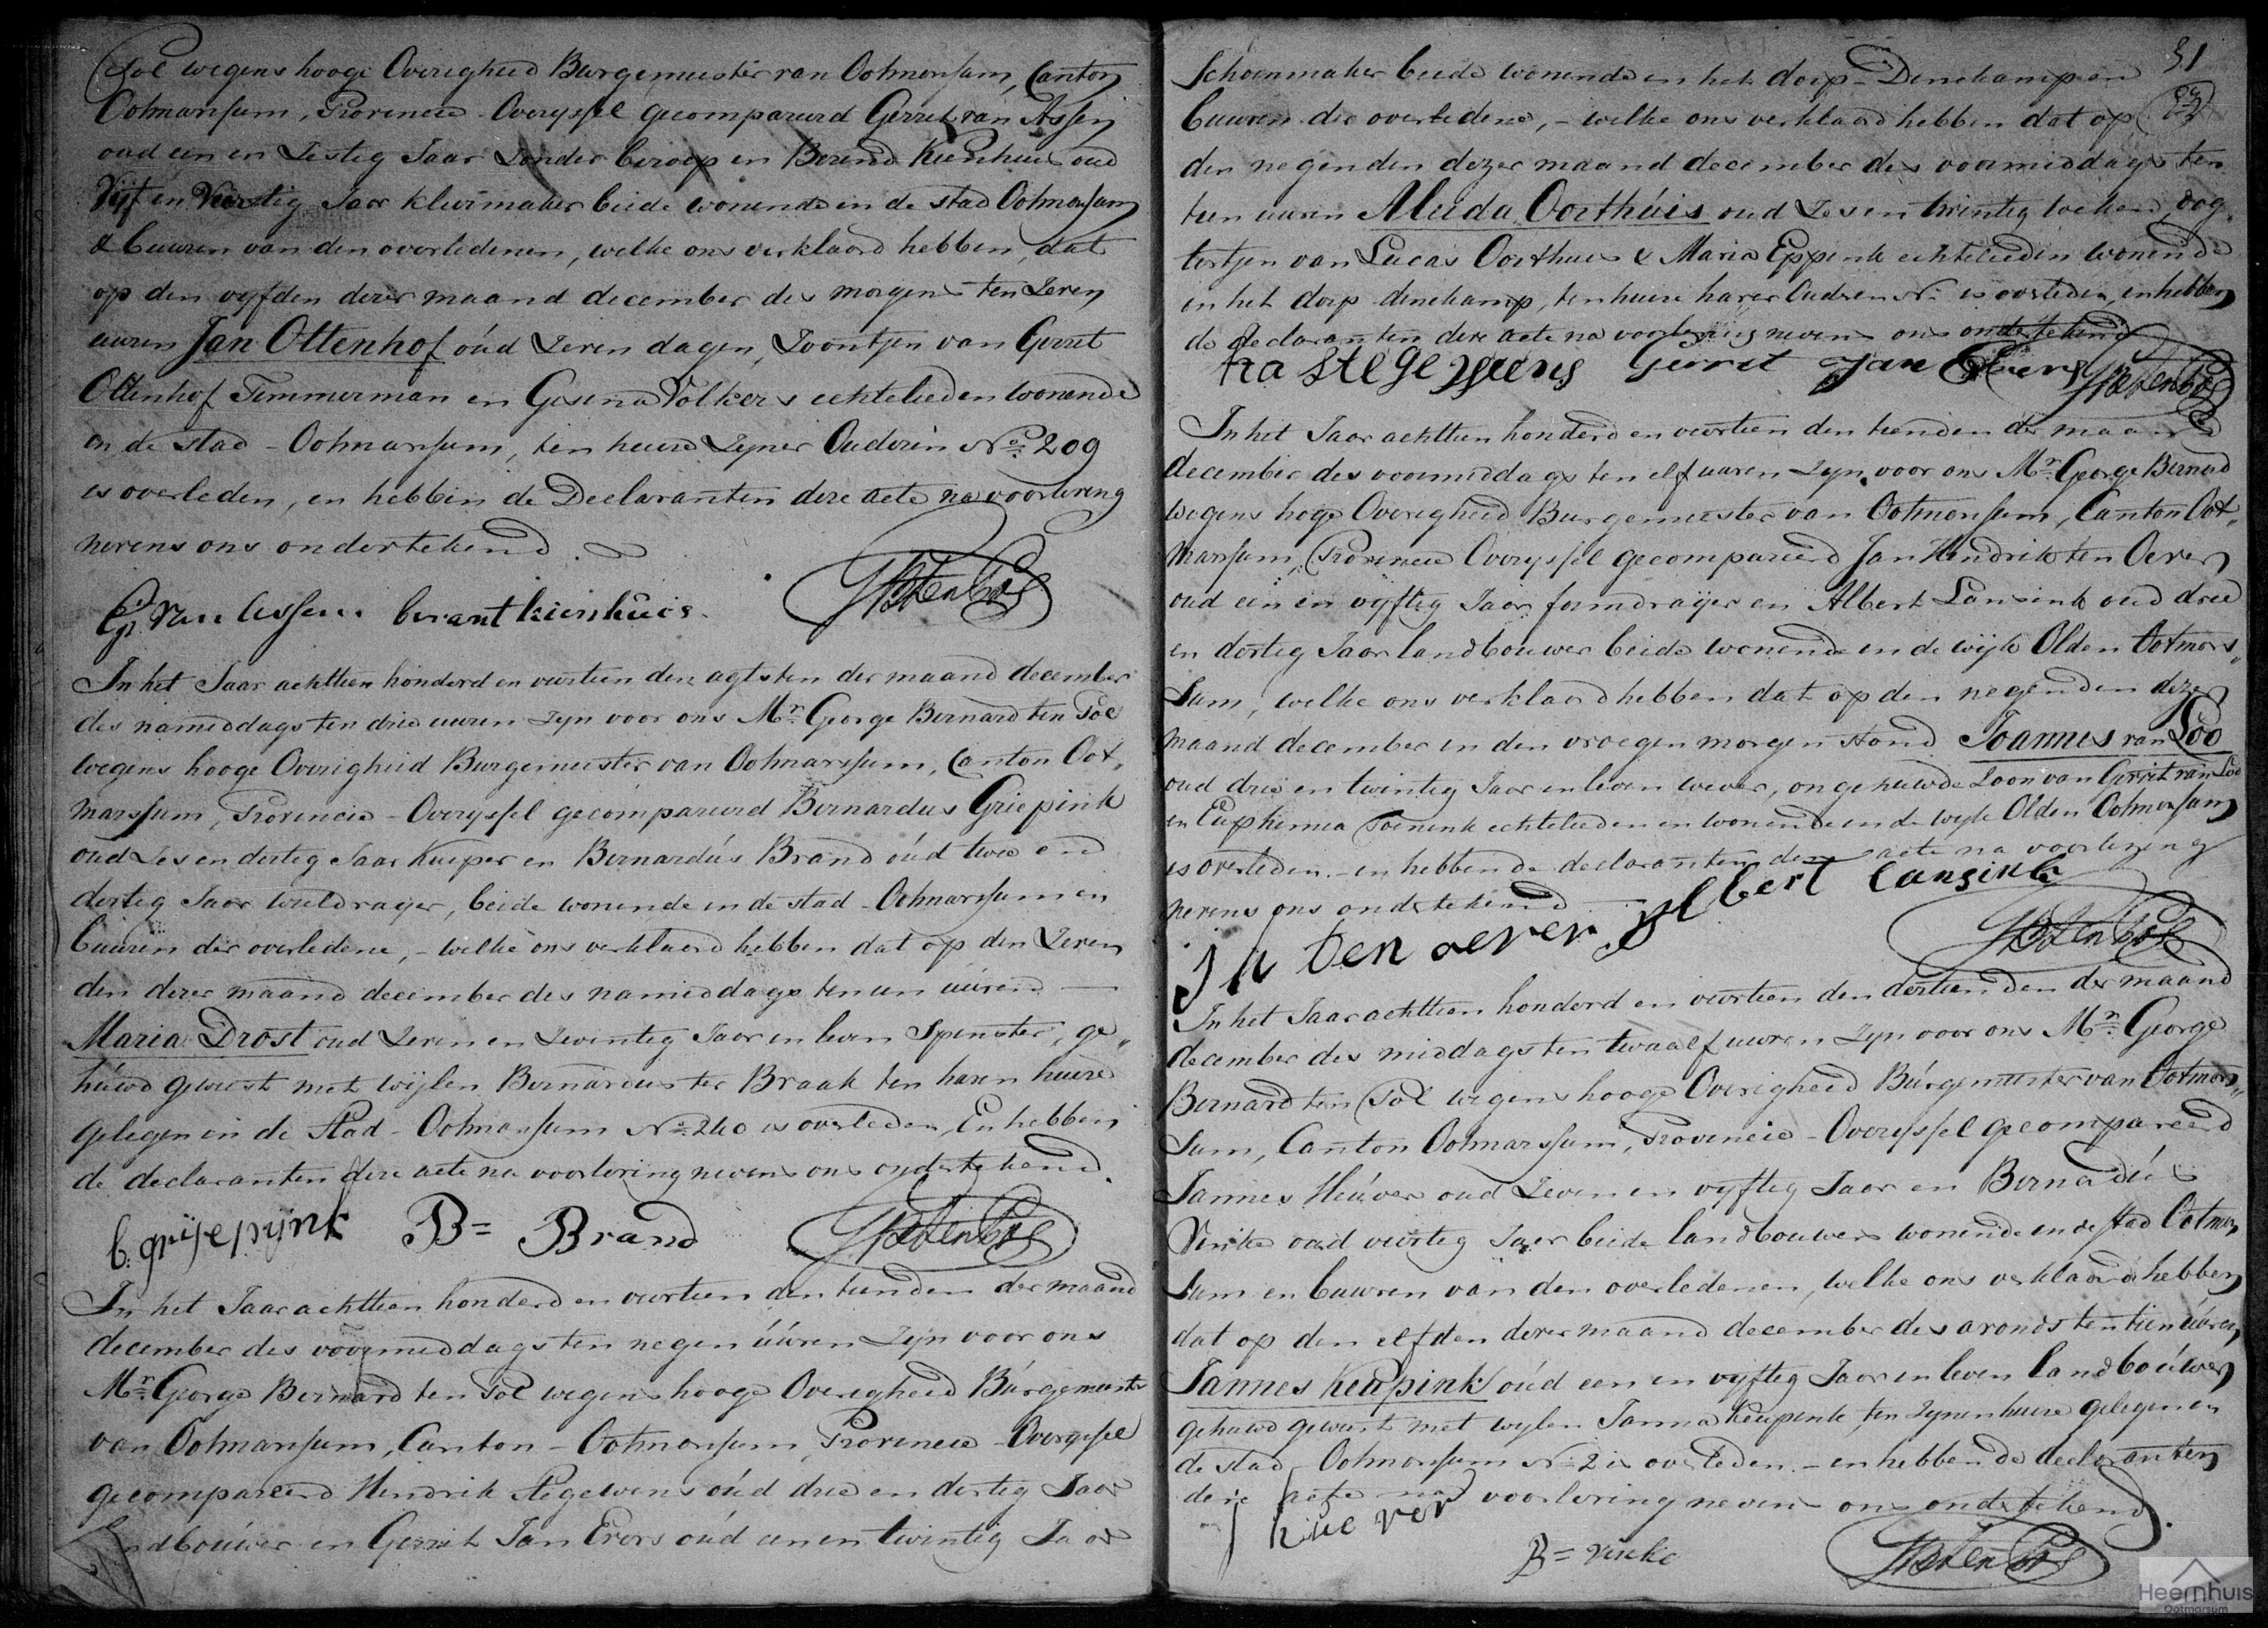 Pol wegens hooge Overigheid Burgemeester van Ootmarssum, Canton
Ootmarssum, Provincie Overyssel gecompareerd Gerrit van Assen
oud een en Zestig Jaar Zonder beroep en Berend Kienhuis oud
Vijf en Veertig Jaar kleermaker beide wonende in de stad Ootmarssum
& buuren van den overledenen, welke ons verklaard hebben, dat
op den vyfden dezer maand december des morgens ten Zeven
uuren Jan Ottenhof oud Zeven dagen, Zoontjen van Gerrit
Ottenhof Timmerman en Gesina Volkers echtelieden wonende
in de stad - Ootmarssum, ten huise Zyner Ouderen No. 209
is overleden, en hebben de Declaranten deze acte na voorlezing
nevens ons ondertekend.
G. van Assen. berant kienhuis.
GB ten Pol
In het Jaar achttien honderd en veertien den agtsten der maand december
des namiddags ten drie uuren Zyn voor ons Mr. George Bernard ten Pol
wegens hooge Overigheid Burgemeester van Ootmarssum, Canton Oot„
marssum, Provincie - Overyssel gecompareerd Bernardus Griepink
oud Zes en dertig Jaar Kuiper en Bernardus Brand oud twee en
dertig Jaar wieldrayer, beide wonende in de stad - Ootmarssum en
buuren der overledene, - welke ons verklaard hebben dat op den Zeven
den dezer maand december des namiddags ten een uuren -
Maria Drost oud Zeven en Zeventig Jaar in leven Spinster, ge„
huwd geweest met wijlen Bernardus ter Braak ten haren huise
gelegen in de Stad - Ootmarssum No. 240 is overleden, En hebben
de declaranten deze acte na voorlezing nevens ons ondertekend.
b. grijepijnk B= Brand GB ten Pol
In het Jaar achttien honderd en veertien den tienden der maand
december des voormiddags ten negen uuren Zijn voor ons
Mr. George Bernard ten Pol wegens hooge Overigheid Burgemeester
van Ootmarssum, Canton - Ootmarssum Provincie - Overyssel
gecompareerd Hendrik Stegewens oud drie en dertig Jaar
landbouwer en Gerrit Jan Evers oud een en twintig Jaar
31
Schoenmaker beide wonende in het dorp - Denekamp en
buuren der overledene, - welke ons verklaard hebben dat op
den negenden dezer maand december des voormiddags ten
tien uuren Aleida Oorthuis oud Zes en twintig weken, dog„
tertjen van Lucas Oorthuis & Maria Eppink echtelieden wonende
in het dorp denekamp, ten huise harer Ouderen No. is overleden, en hebben
de declaranten deze acte na voorlezing nevens ons ondertekend
Gerrit Jan Evers GB ten Pol
In het Jaar achttien honderd en veertien den tienden der maand
december des voormiddags ten elf uuren Zyn voor ons Mr. George Bernard
wegens hoge Overigheid Burgemeester van Ootmarssum, Canton Oot„
marssum, Provincie Overyssel gecompareerd Jan Hendrik ten Oever
oud een en vyftig Jaar, formdrayer en Albert Lansink oud drie
en dertig Jaar landbouwer beide wonende in de wijk Olden Ootmars„
sum, welke ons verklaard hebben dat op den negenden dezer
maand december in den vroegen morgen stond Joannes van Loo
oud drie en twintig Jaar in leven wever, ongehuwde Zoon van Gerrit van Loo
en Euphemia Poenink echtelieden en wonende in de wyk Olden Ootmarssum
is overleden. - en hebben de declaranten deze acte na voorlezing
nevens ons ondertekend -
J H ten oever albert lansink
GB ten Pol
In het Jaar achttien honderd en veertien den dertienden der maand
december des middags ten twaalf uuren Zyn voor ons Mr. George
Bernard ten Pol wegens hooge Overigheid Burgemeester van Ootmars„
sum, Canton Ootmarssum, Provincie - Overyssel gecompareerd
Jannes Heuver oud Zeven en vyftig Jaar en Bernadus
Vinke oud veertig Jaer beide landbouwers wonende in de stad Ootmars
sum en buuren van den overledenen, welke ons verklaard hebben
dat op den elfden dezer maand december des avonds ten tien uuren
Jannes Keupink oud een en vyftig Jaar in leven landbouwer
gehuwd geweest met wylen Janna Keupink, ten Zynen huise gelegen in
de stad Ootmarssum No. 2 is overleden. - en hebben de declaranten
deze acte na voorlezing nevens ons ondertekend.
J hue ver
B= vinke GB ten Pol
Heemhuis
Ootmarsum